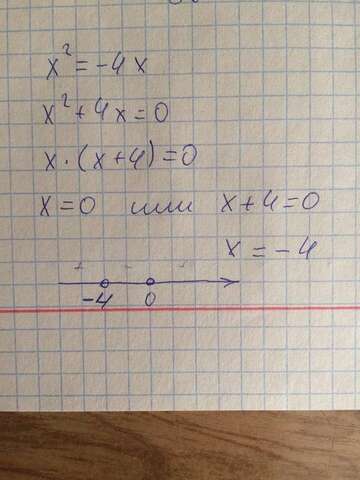 x² = -4x
x² + 4x = 0
x · (x + 4) = 0
x = 0 или x + 4 = 0
x = -4
+ - +
-4 0